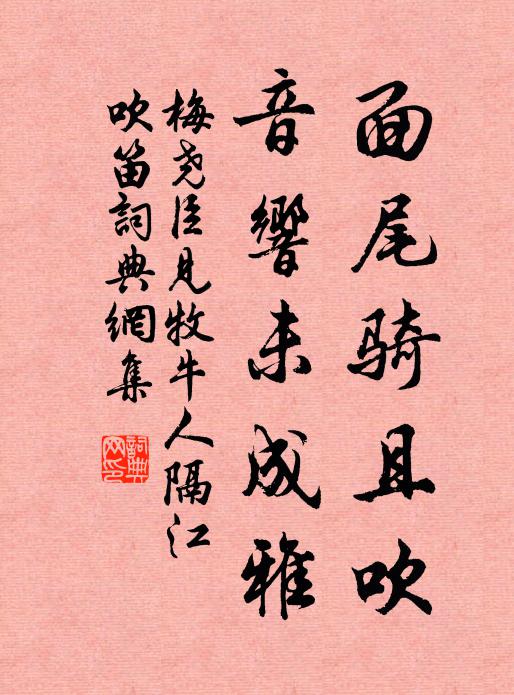 面尾骑且吹
音響未成雅
梅尧臣見牧牛人隔江
吹笛詞典網集
詞典
网印